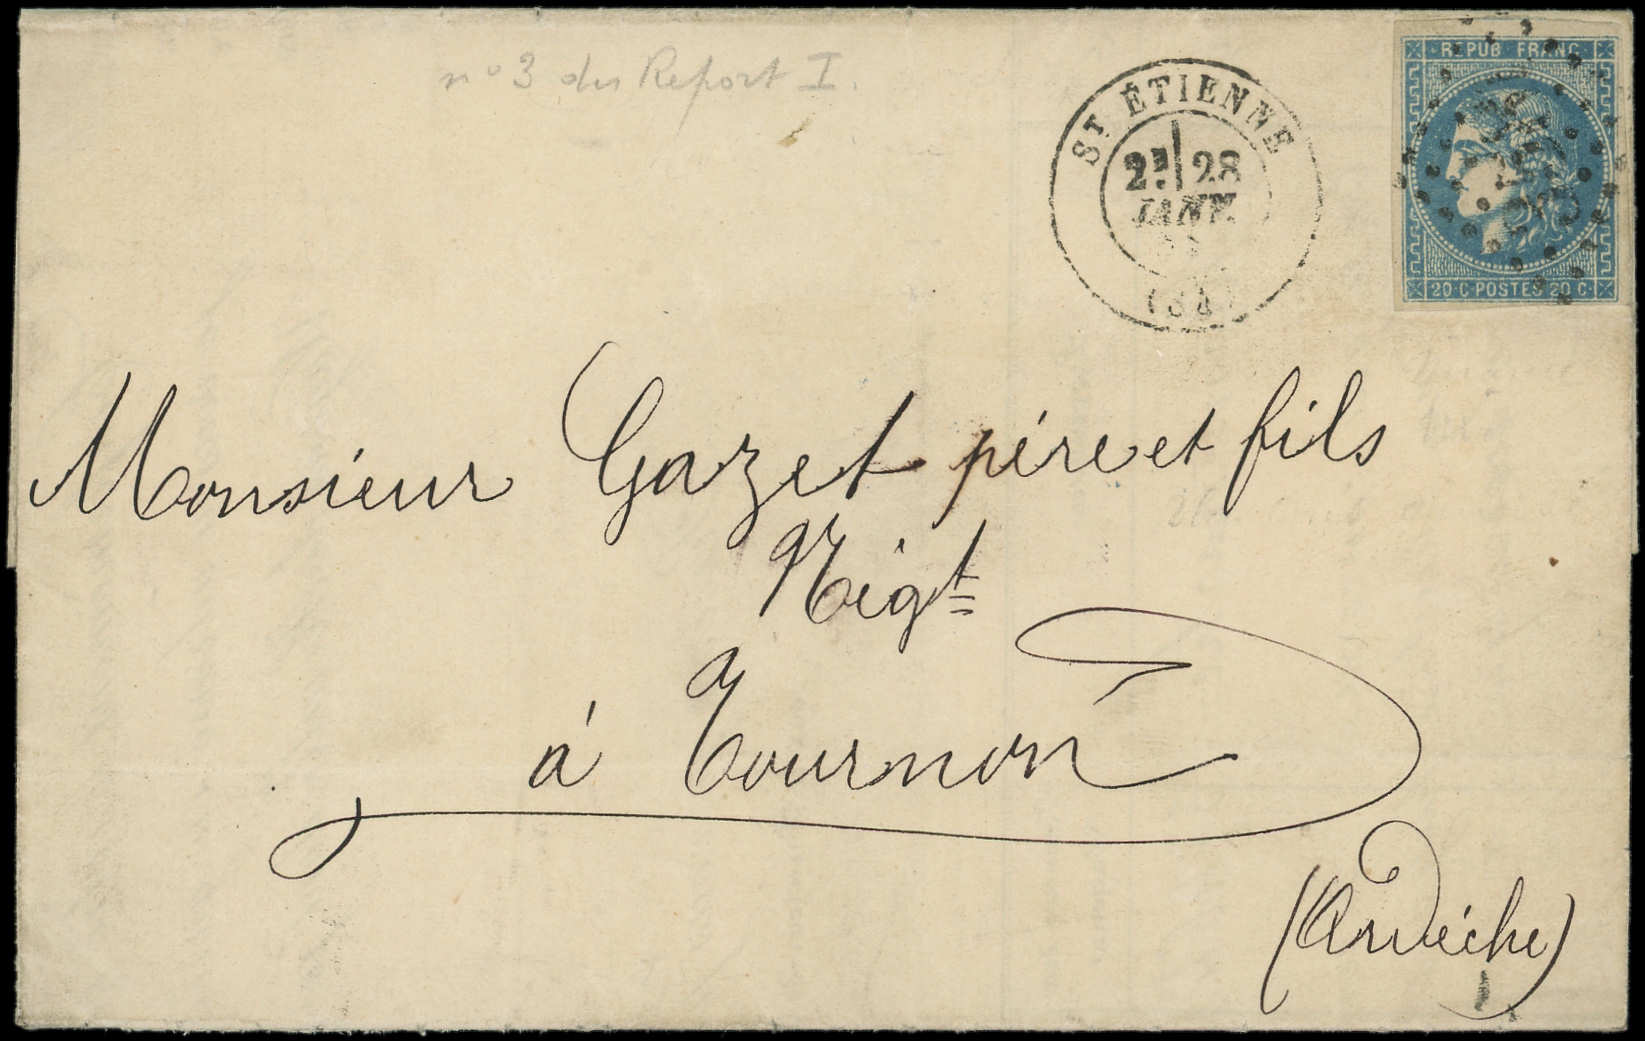 n° 3 du Report I.
ST ÉTIENNE
2E 28
JANV.
(84)
REPUB FRANC
20 C POSTES 20 C
Monsieur Gazet père et fils
Négt
à Tournon
(Ardéche)